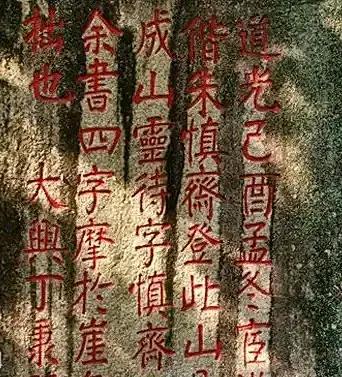 道光己酉孟冬
偕朱慎齋登此山
成山靈待字慎齋
余書四字摩於崖
拙也 大興丁秉